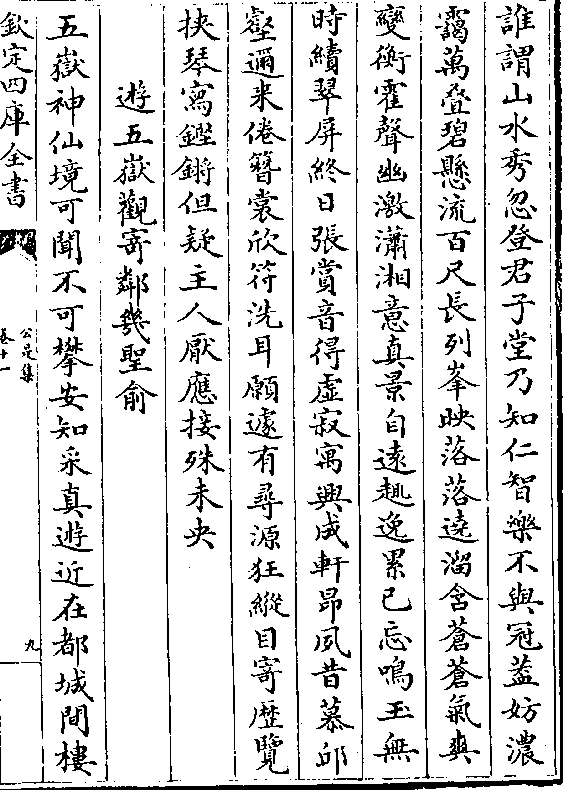 誰謂山水秀忽登君子堂乃知仁智樂不與冠蓋妨濃
靄萬疊碧懸流百尺長列峯映落落遶溜含蒼蒼氣爽
變衡霍聲幽激瀟湘意真景自遠趣逸累已忘鳴玉無
時續翠屏終日張賞音得虛寂寓興成軒昂夙昔慕邱
壑邇來倦簪裳欣符洗耳願遽有尋源狂縱目寄歷覽
挾琴寫鏗鏘但疑主人厭應接殊未央
遊五嶽觀寄鄰幾聖俞
五嶽神仙境可聞不可攀安知采真遊近在都城間樓
欽定四庫全書
公是集
卷十一
九